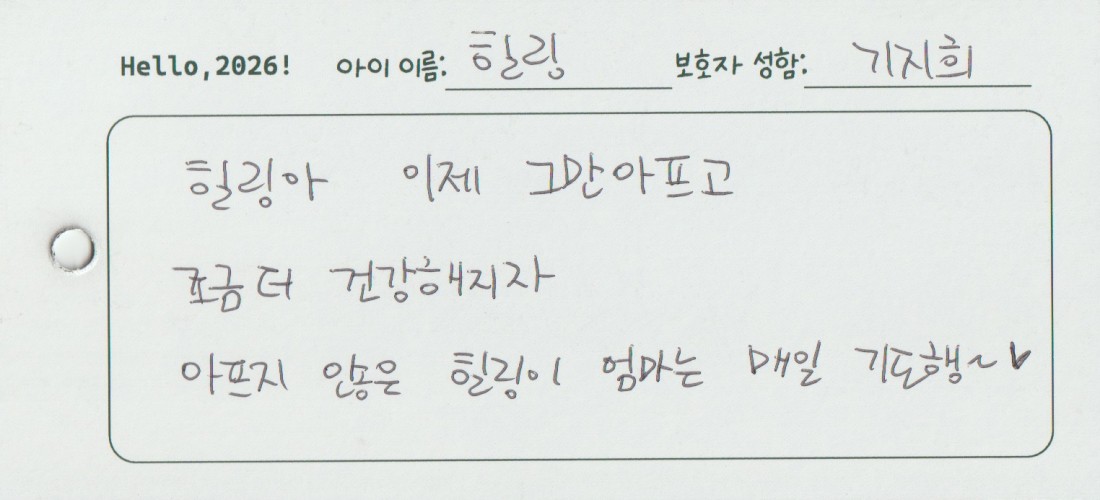 Hello,2026! 아이 이름: 힐링 보호자 성함: 기지희
힐링아 이제 그만아프고
조금 더 건강해지자
아프지 않은 힐링이 엄마는 매일 기도행~♥